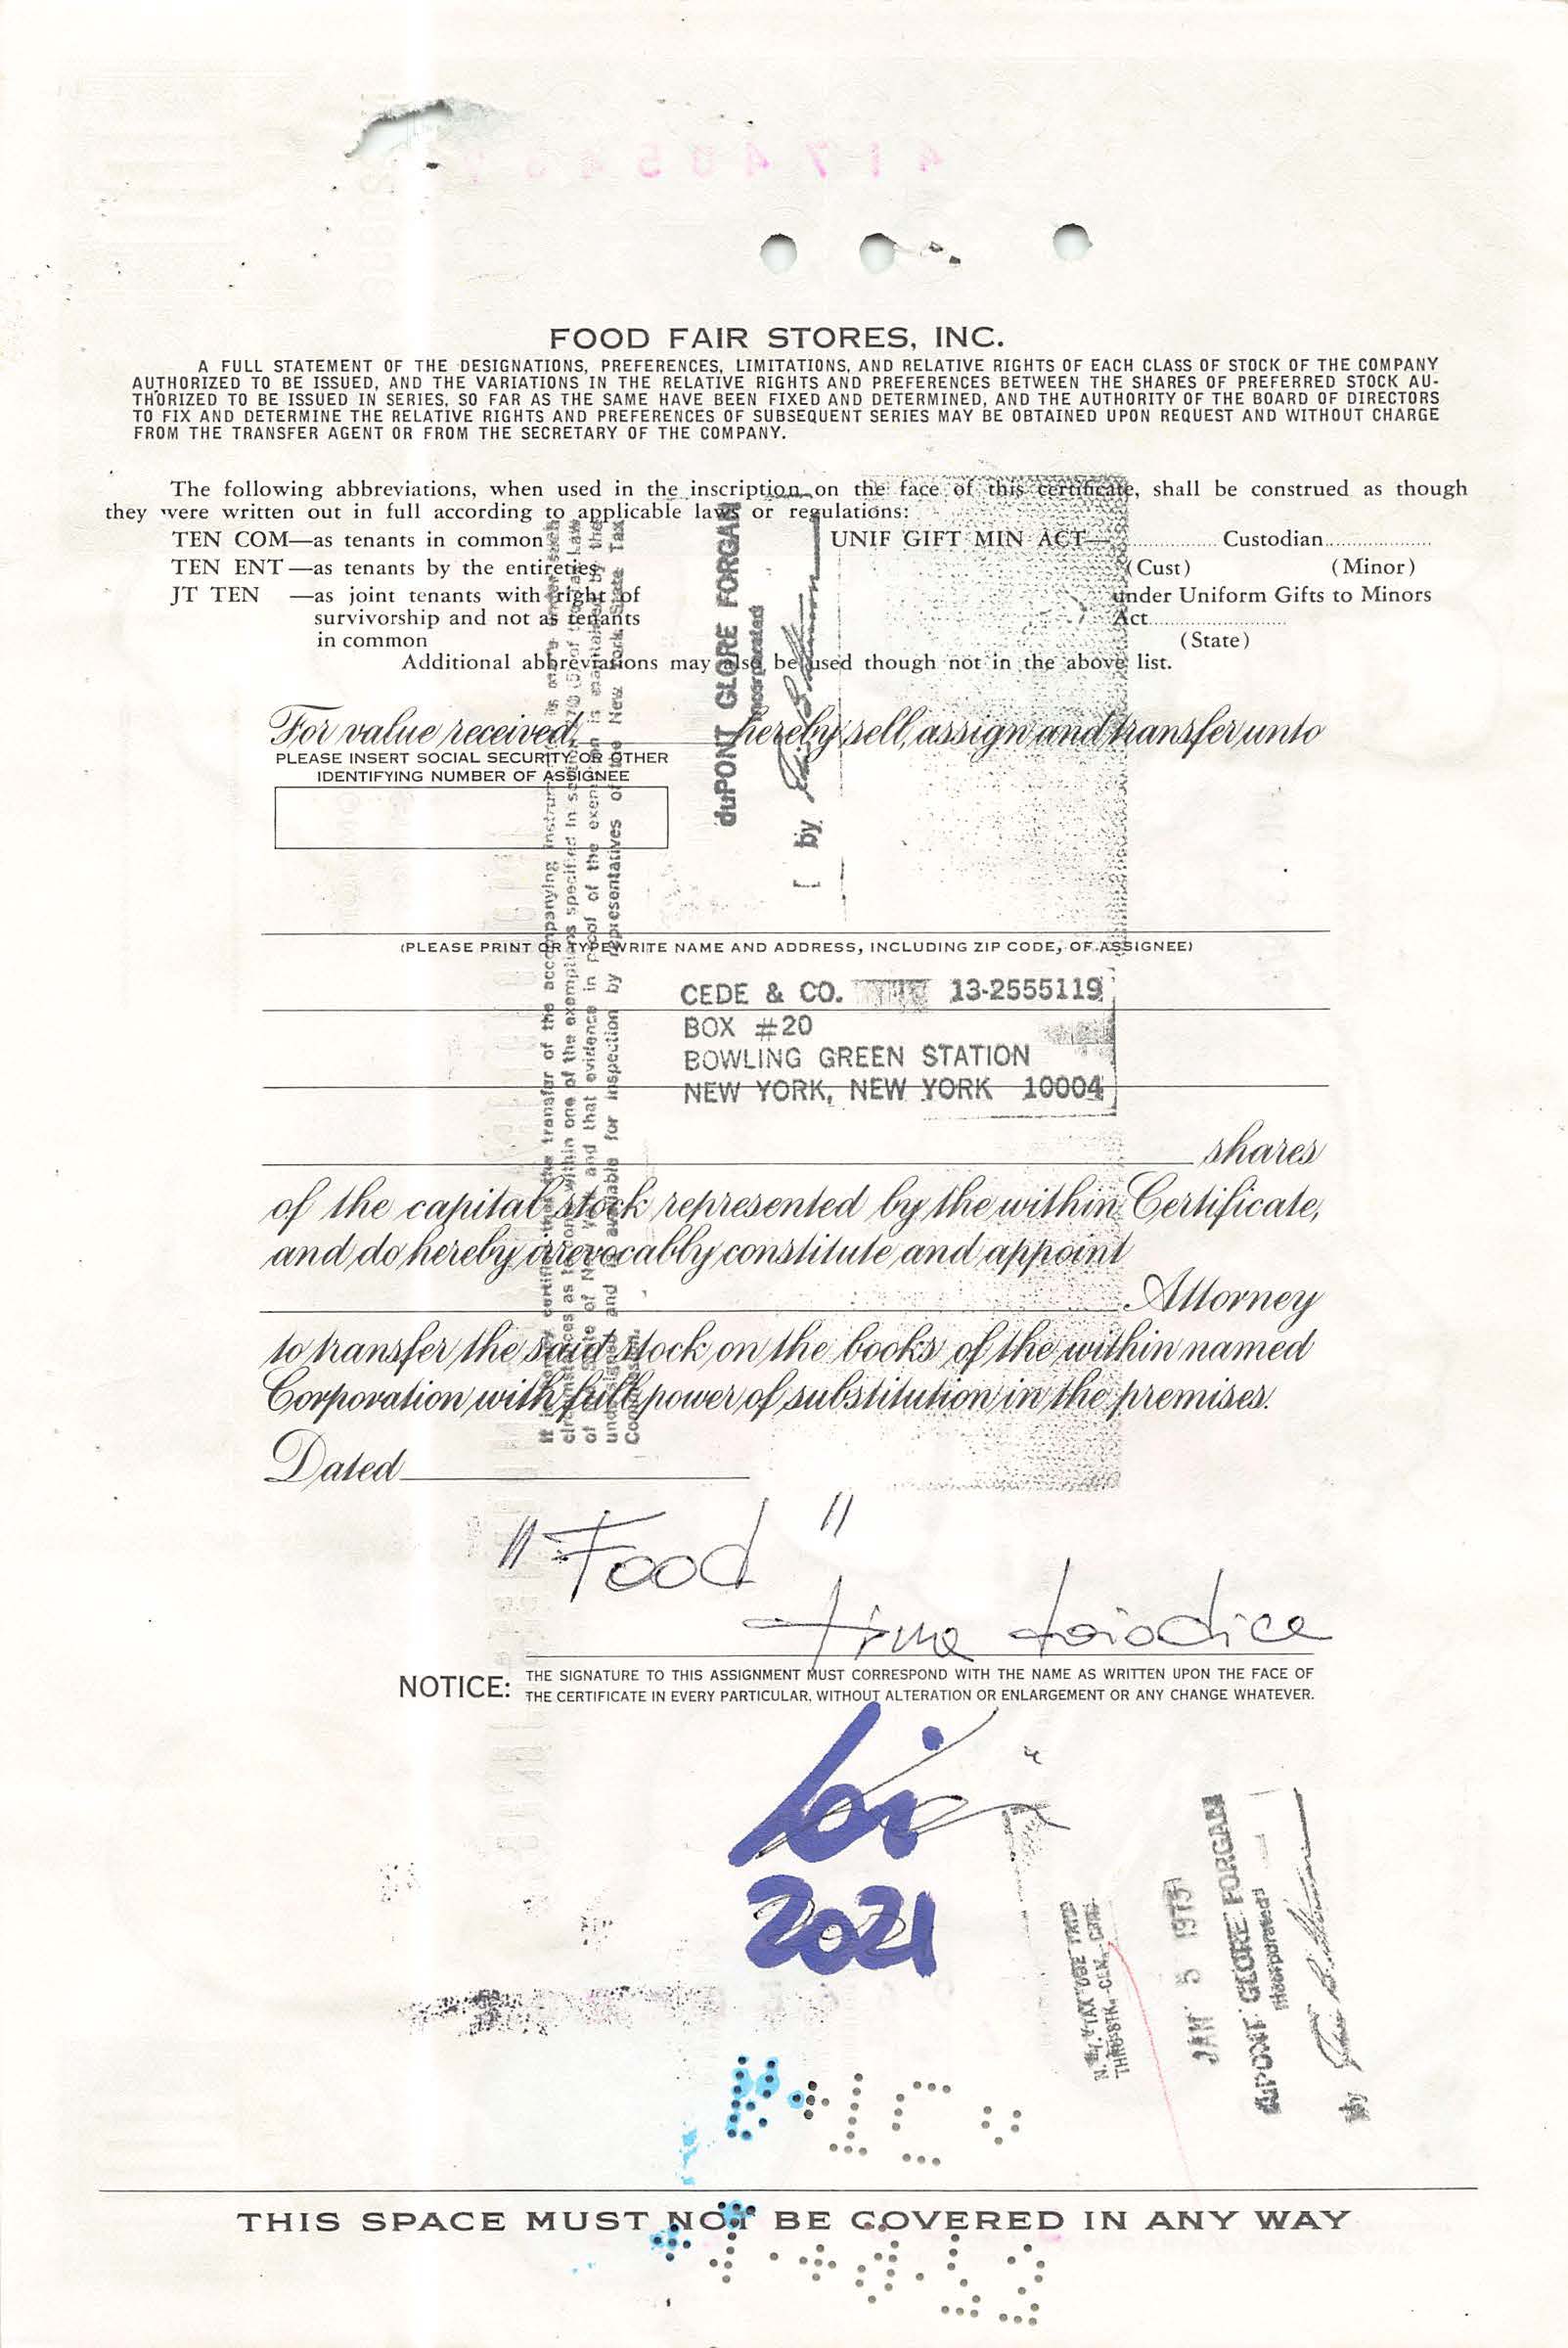 FOOD FAIR STORES, INC.
A FULL STATEMENT OF THE DESIGNATIONS, PREFERENCES, LIMITATIONS, AND RELATIVE RIGHTS OF EACH CLASS OF STOCK OF THE COMPANY
AUTHORIZED TO BE ISSUED, AND THE VARIATIONS IN THE RELATIVE RIGHTS AND PREFERENCES BETWEEN THE SHARES OF PREFERRED STOCK AU-
THORIZED TO BE ISSUED IN SERIES, SO FAR AS THE SAME HAVE BEEN FIXED AND DETERMINED, AND THE AUTHORITY OF THE BOARD OF DIRECTORS
TO FIX AND DETERMINE THE RELATIVE RIGHTS AND PREFERENCES OF SUBSEQUENT SERIES MAY BE OBTAINED UPON REQUEST AND WITHOUT CHARGE
FROM THE TRANSFER AGENT OR FROM THE SECRETARY OF THE COMPANY.
The following abbreviations, when used in the inscription on the face of this certificate, shall be construed as though
they were written out in full according to applicable laws or regulations:
TEN COM—as tenants in common
TEN ENT—as tenants by the entireties
JT TEN —as joint tenants with right of
survivorship and not as tenants
in common
UNIF GIFT MIN ACT—.................Custodian...................
(Cust) (Minor)
under Uniform Gifts to Minors
Act........................
(State)
Additional abbreviations may also be used though not in the above list.
For value received, hereby sell, assign and transfer unto
PLEASE INSERT SOCIAL SECURITY OR OTHER
IDENTIFYING NUMBER OF ASSIGNEE
duPONT GLORE FORGAN
Incorporated
by
(PLEASE PRINT OR TYPEWRITE NAME AND ADDRESS, INCLUDING ZIP CODE, OF ASSIGNEE)
CEDE & CO. 13-2555119
BOX #20
BOWLING GREEN STATION
NEW YORK, NEW YORK 10004
It is hereby certified that the transfer of the accompanying instrument is made under such
circumstances as to come within one of the exemptions specified in section 270 (5) of the Tax Law
of the State of New York and that evidence in proof of the exemption is maintained by the
undersigned and is available for inspection by representatives of the New York State Tax
Commission.
shares
of the capital stock represented by the within Certificate,
and do hereby irrevocably constitute and appoint
Attorney
to transfer the said stock on the books of the within named
Corporation with full power of substitution in the premises.
Dated
"Food"
NOTICE: THE SIGNATURE TO THIS ASSIGNMENT MUST CORRESPOND WITH THE NAME AS WRITTEN UPON THE FACE OF
THE CERTIFICATE IN EVERY PARTICULAR, WITHOUT ALTERATION OR ENLARGEMENT OR ANY CHANGE WHATEVER.
loi
2021
JAN 5 1973
duPONT GLORE FORGAN
Incorporated
by
THIS SPACE MUST NOT BE COVERED IN ANY WAY